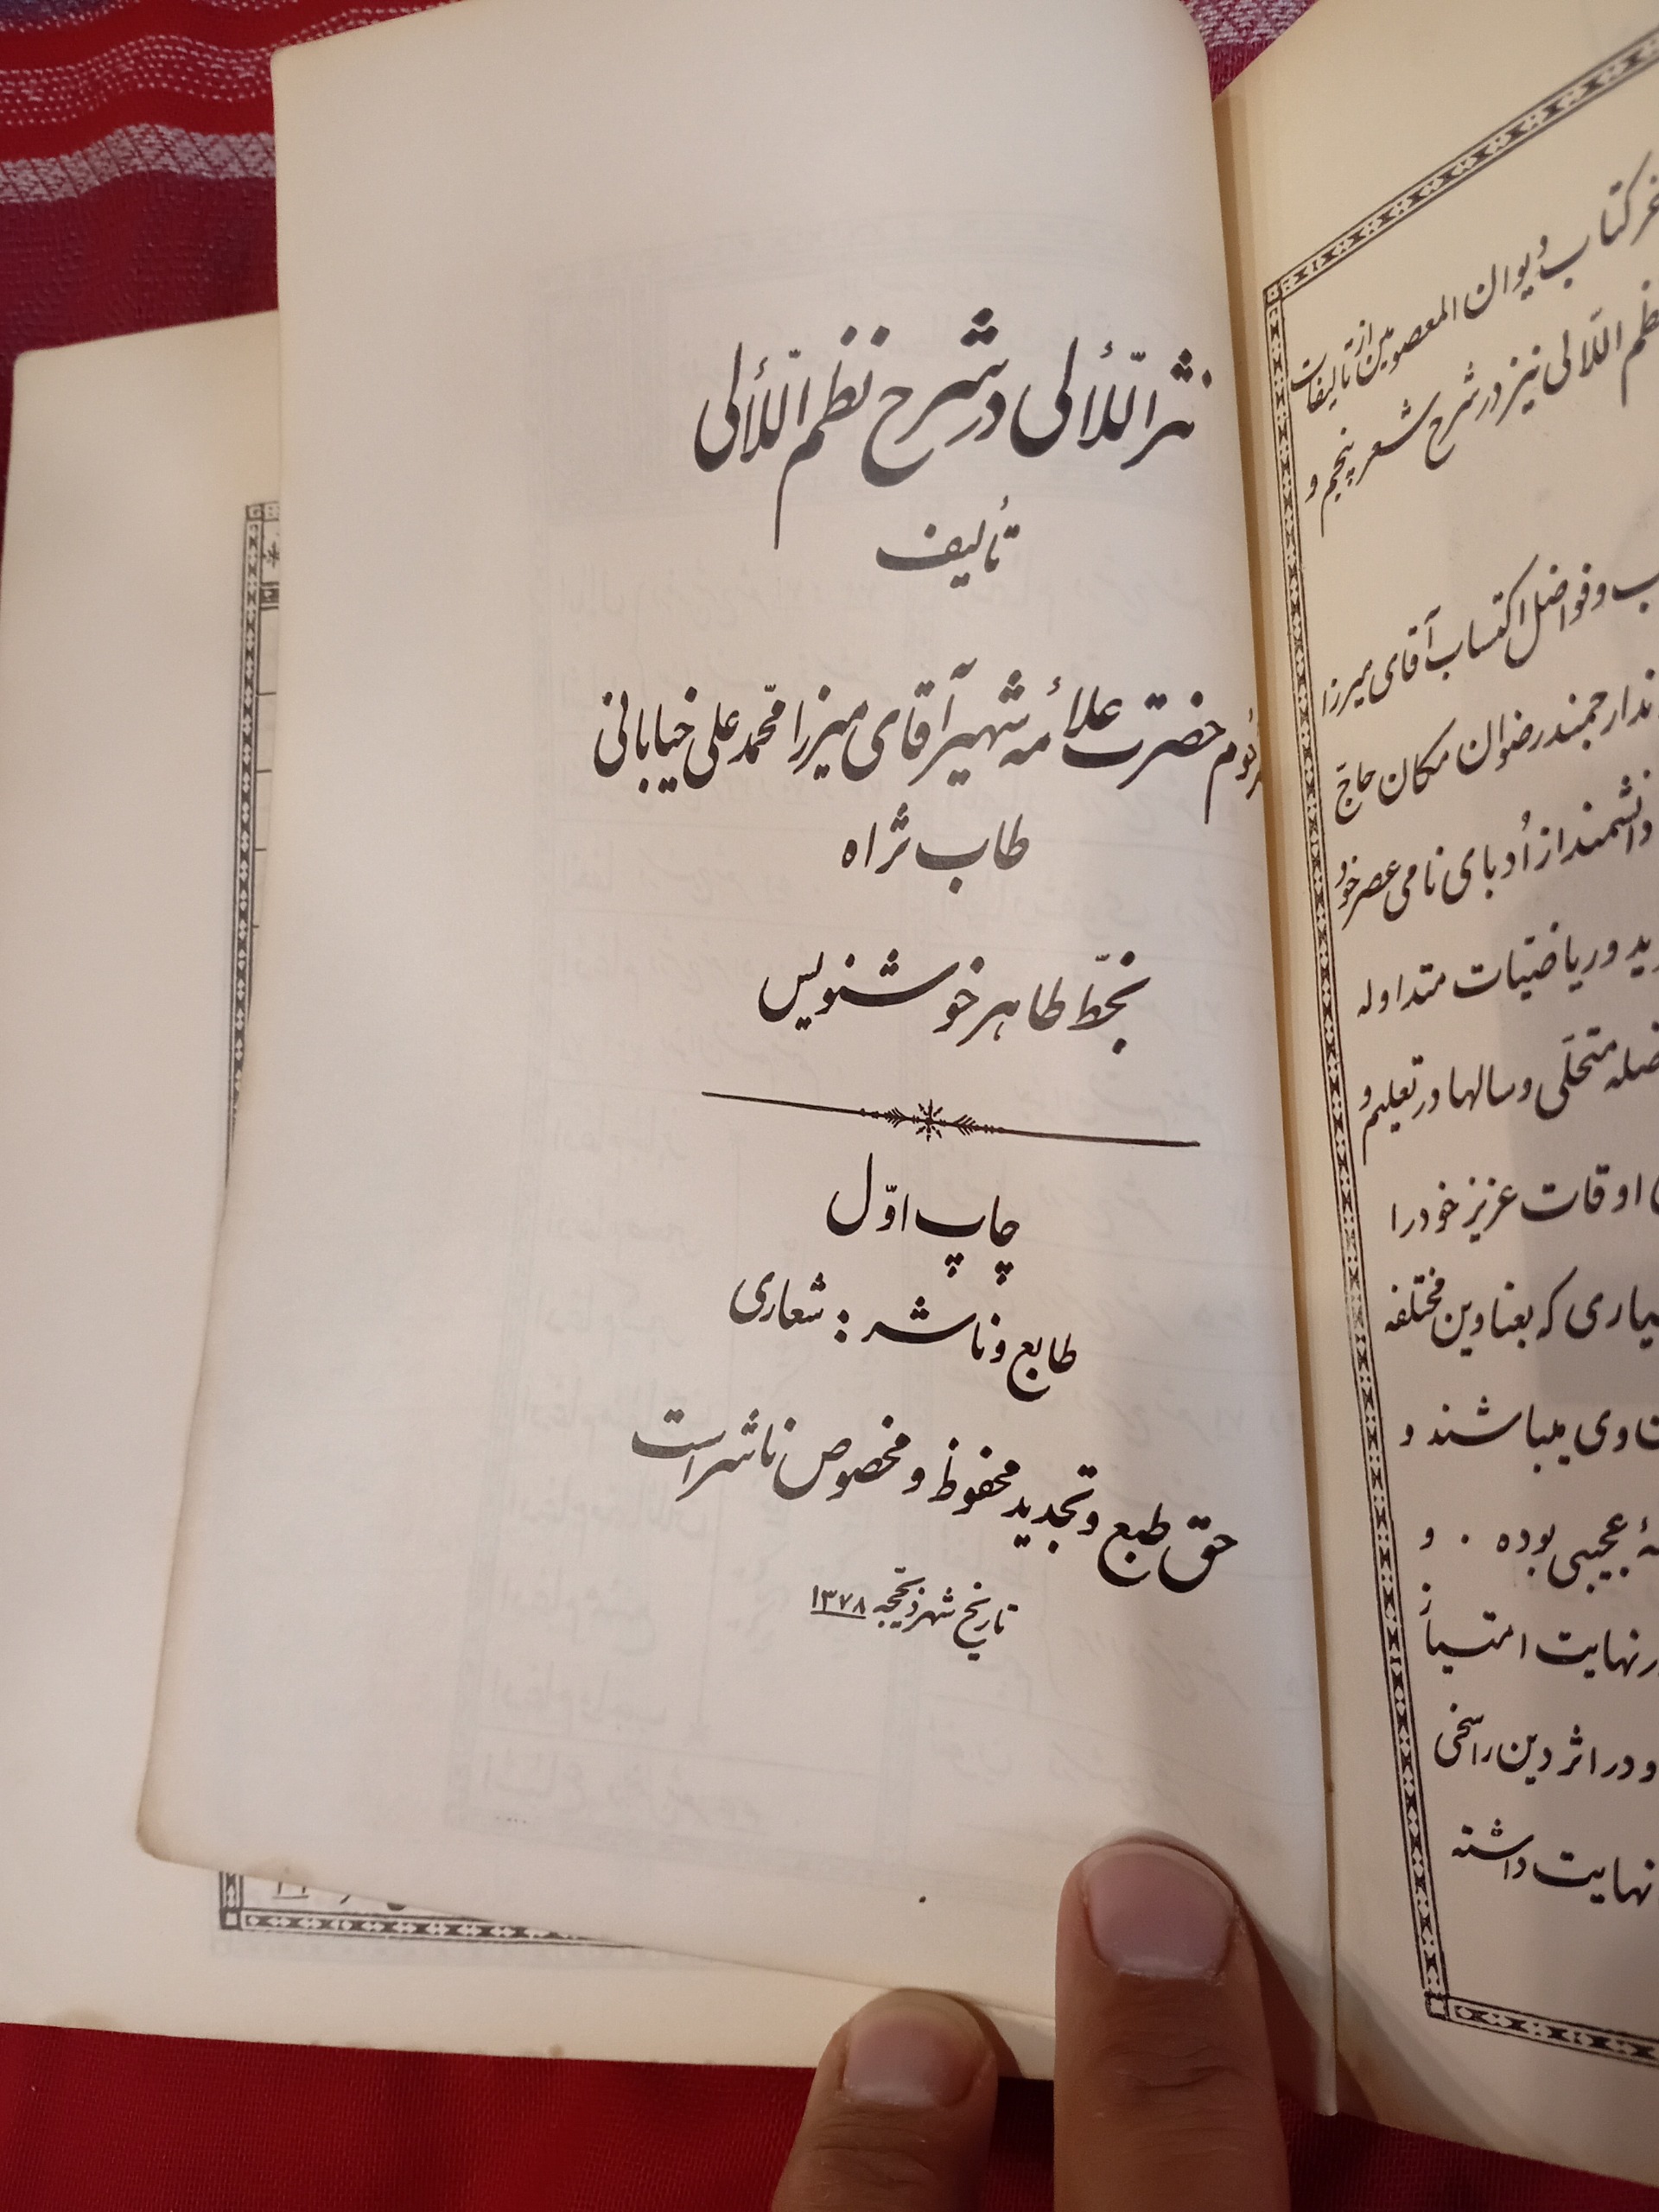 نثر اللّألی در شرح نظم اللّألی
تألیف
حضرت علاّمه شهیر آقای میرزا محمّد علی خیابانی
طاب ثراه
بخطّ طاهر خوشنویس
چاپ اوّل
طابع و ناشر : شعاری
حق طبع و تجدید محفوظ و مخصوص ناشر است
تاریخ شهر ذیحجه ۱۳۷۸
کتاب دیوان المعصومین از تالیفات
نظم اللّالی نیز در شرح شعر پنجم و
و فواضل اکتساب آقای میرزا
ارجمند رضوان مکان حاج
دانشمند از اُدبای نامی عصر خود
و ریاضیات متداوله
متحلّی و سالها در تعلیم و
اوقات عزیز خود را
که بعناوین مختلفه
میباشند و
عجیبی بوده . و
نهایت امتیاز
و در اثر دین راسخی
نهایت داشته